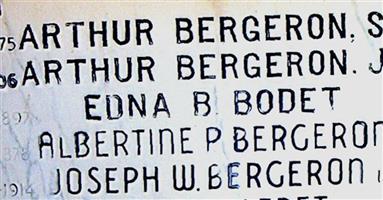 75 ARTHUR BERGERON, S
06 ARTHUR BERGERON. J
897 EDNA B BODET
878 ALBERTINE P. BERGERON
-1914 JOSEPH W. BERGERON